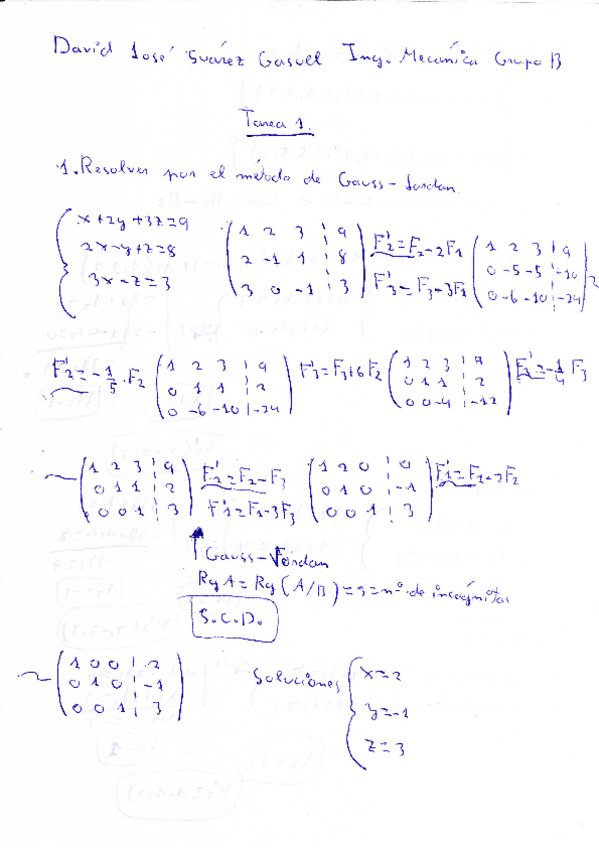 David José Suárez Gasuel Ing. Mecánica Grupo B
Tarea 1.
1. Resolver por el método de Gauss-Jordan.
{ x+2y+3z=9
2x-y+z=8
3x-z=3
( 1 2 3 | 9
2 -1 1 | 8
3 0 -1 | 3 )
F'2=F2-2F1
F'3=F3-3F1
( 1 2 3 | 9
0 -5 -5 | -10
0 -6 -10 | -24 )
F'2=-1/5·F2
( 1 2 3 | 9
0 1 1 | 2
0 -6 -10 | -24 )
F'3=F3+6F2
( 1 2 3 | 9
0 1 1 | 2
0 0 -4 | -12 )
F'3=-1/4 F3
~ ( 1 2 3 | 9
0 1 1 | 2
0 0 1 | 3 )
F'2=F2-F3
F'1=F1-3F3
( 1 2 0 | 0
0 1 0 | -1
0 0 1 | 3 )
F'1=F1-2F2
↑ Gauss-Jordan
Rg A = Rg (A/B) = 3 = nº de incógnitas
S.C.D.
~ ( 1 0 0 | 2
0 1 0 | -1
0 0 1 | 3 )
Soluciones { x=2
y=-1
z=3